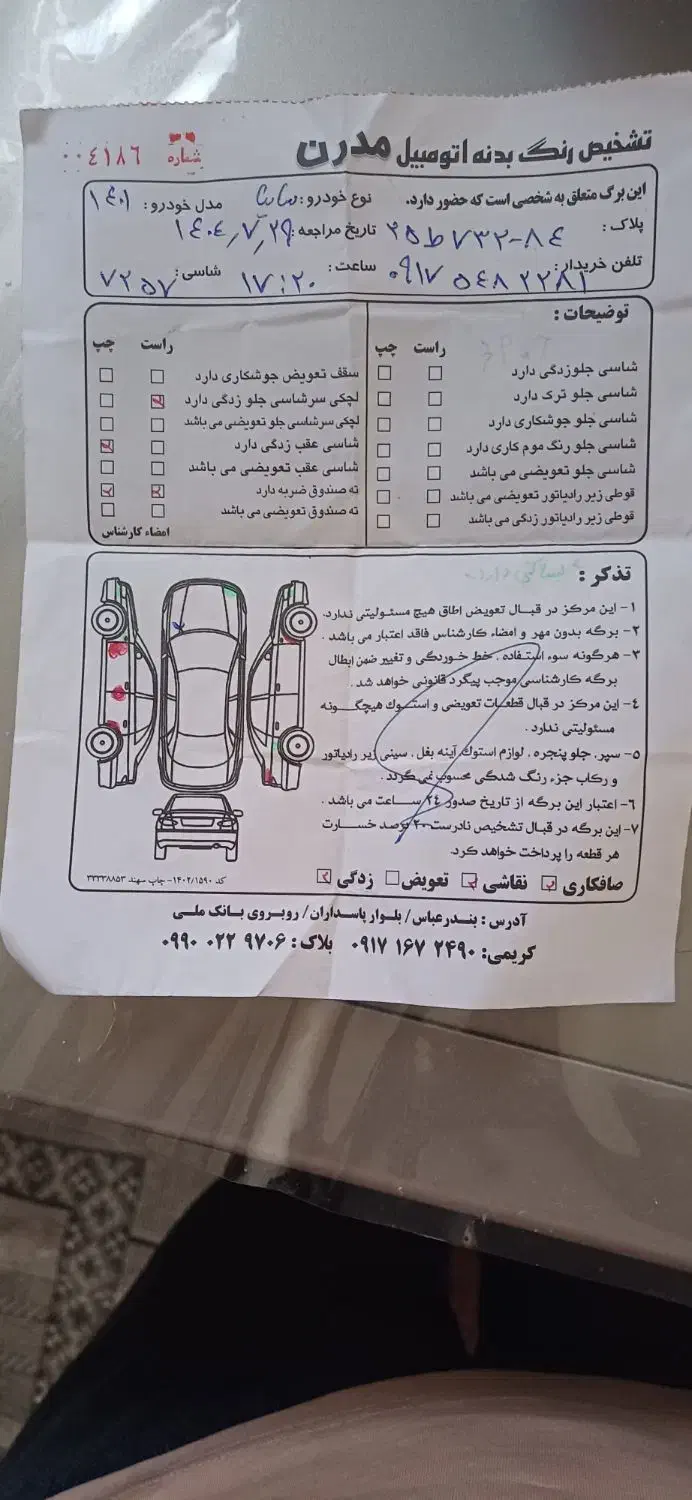 تشخیص رنگ بدنه اتومبیل مدرن
شماره ۰۰۴۱۸۶
این برگ متعلق به شخصی است که حضور دارد. نوع خودرو: ساینا مدل خودرو: ۱۴۰۱
پلاک: ۲۵ط۷۳۲-۸۴ تاریخ مراجعه: ۱۴۰۴٫۷٫۲۹
تلفن خریدار: ۰۹۱۷ ۵۴۸۲۲۸۱ ساعت: ۱۷:۲۰ شاسی: ۷۲۵۷
توضیحات:
راست چپ
شاسی جلوزدگی دارد
شاسی جلو ترک دارد
شاسی جلو جوشکاری دارد
شاسی جلو رنگ موم کاری دارد
شاسی جلو تعویضی می باشد
قوطی زیر رادیاتور تعویضی می باشد
قوطی زیر رادیاتور زدگی می باشد
راست چپ
سقف تعویض جوشکاری دارد
لچکی سرشاسی جلو زدگی دارد
لچکی سرشاسی جلو تعویضی می باشد
شاسی عقب زدگی دارد
شاسی عقب تعویضی می باشد
ته صندوق ضربه دارد
ته صندوق تعویضی می باشد
امضاء کارشناس
تذکر:
۱- این مرکز در قبال تعویض اطاق هیچ مسئولیتی ندارد.
۲- برگه بدون مهر و امضاء کارشناس فاقد اعتبار می باشد.
۳- هرگونه سوء استفاده، خط خوردگی و تغییر ضمن ابطال
برگه کارشناسی موجب پیگرد قانونی خواهد شد.
۴- این مرکز در قبال قطعات تعویضی و استوک هیچگونه
مسئولیتی ندارد.
۵- سپر، جلو پنجره، لوازم استوک آینه بغل، سینی زیر رادیاتور
و رکاب جزء رنگ شدگی محسوب نمی گردند.
۶- اعتبار این برگه از تاریخ صدور ۲۴ ساعت می باشد.
۷- این برگه در قبال تشخیص نادرست ۲۰ درصد خسارت
هر قطعه را پرداخت خواهد کرد.
صافکاری نقاشی تعویض زدگی
کد ۱۴۰۲/۱۵۹۰- چاپ سهند ۳۳۳۳۸۸۵۳
آدرس: بندرعباس/ بلوار پاسداران/ روبروی بانک ملی
کریمی: ۰۹۱۷ ۱۶۷ ۲۴۹۰ بلاک: ۰۹۹۰ ۰۲۲ ۹۷۰۶